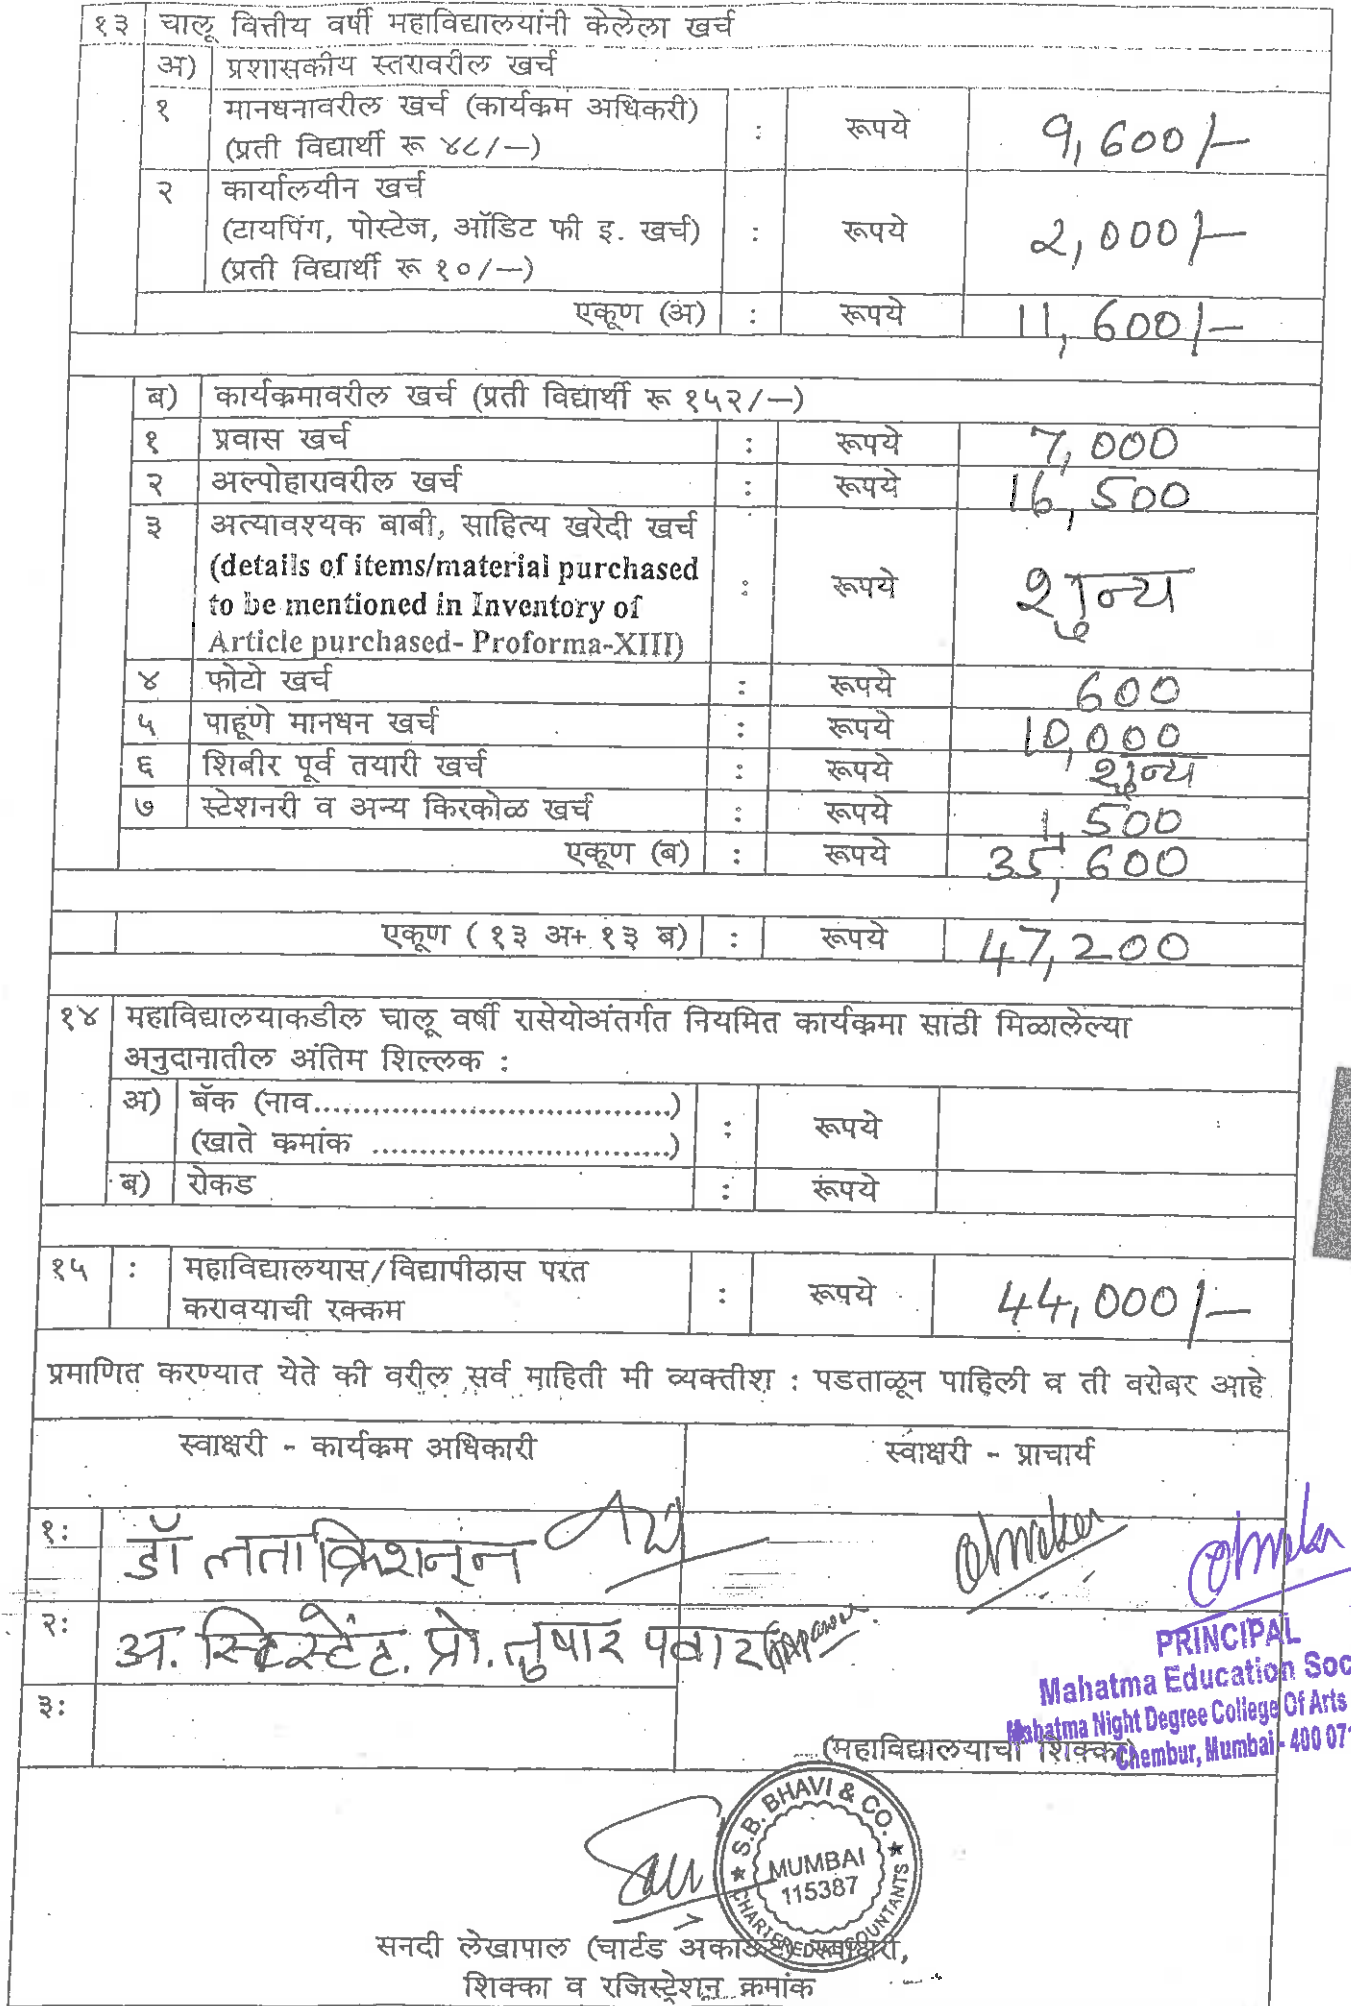 १३ चालू वित्तीय वर्षी महाविद्यालयांनी केलेला खर्च
अ) प्रशासकीय स्तरावरील खर्च
१ मानधनावरील खर्च (कार्यक्रम अधिकरी)
(प्रती विद्यार्थी रू ४८/–) : रूपये 9,600/-
२ कार्यालयीन खर्च
(टायपिंग, पोस्टेज, ऑडिट फी इ. खर्च) : रूपये 2,000/-
(प्रती विद्यार्थी रू १०/–)
एकूण (अ) : रूपये 11,600/-
ब) कार्यक्रमावरील खर्च (प्रती विद्यार्थी रू १५२/–)
१ प्रवास खर्च : रूपये 7,000
२ अल्पोहारावरील खर्च : रूपये 16,500
३ अत्यावश्यक बाबी, साहित्य खरेदी खर्च
(details of items/material purchased
to be mentioned in Inventory of : रूपये शुन्य
Article purchased- Proforma-XIII)
४ फोटो खर्च : रूपये 600
५ पाहूंणे मानधन खर्च : रूपये 10,000
६ शिबीर पूर्व तयारी खर्च : रूपये शुन्य
७ स्टेशनरी व अन्य किरकोळ खर्च : रूपये 1,500
एकूण (ब) : रूपये 35,600
एकूण ( १३ अ+ १३ ब) : रूपये 47,200
१४ महाविद्यालयाकडील चालू वर्षी रासेयोअंतर्गत नियमित कार्यक्रमा साठी मिळालेल्या
अनुदानातील अंतिम शिल्लक :
अ) बॅक (नाव....................................)
(खाते कमांक ..............................) : रूपये
ब) रोकड : रूंपये
१५ : महाविद्यालयास/विद्यापीठास परत
करावयाची रक्कम : रूपये 44,000/-
प्रमाणित करण्यात येते की वरील सर्व माहिती मी व्यक्तीश : पडताळून पाहिली व ती बरोबर आहे
स्वाक्षरी - कार्यक्रम अधिकारी स्वाक्षरी - प्राचार्य
१: डॉ लता क्रिशनन
२: अ. सिस्टेंट. प्रो. तुषार पवार
३:
PRINCIPAL
Mahatma Education Soc
Mahatma Night Degree College Of Arts
Chembur, Mumbai - 400 07
(महाविद्यालयाचा शिक्का)
S.B. BHAVI & CO.
MUMBAI
115387
CHARTERED ACCOUNTANTS
सनदी लेखापाल (चार्टड अकाऊंट) स्वाक्षरी,
शिक्का व रजिस्ट्रेशन क्रमांक